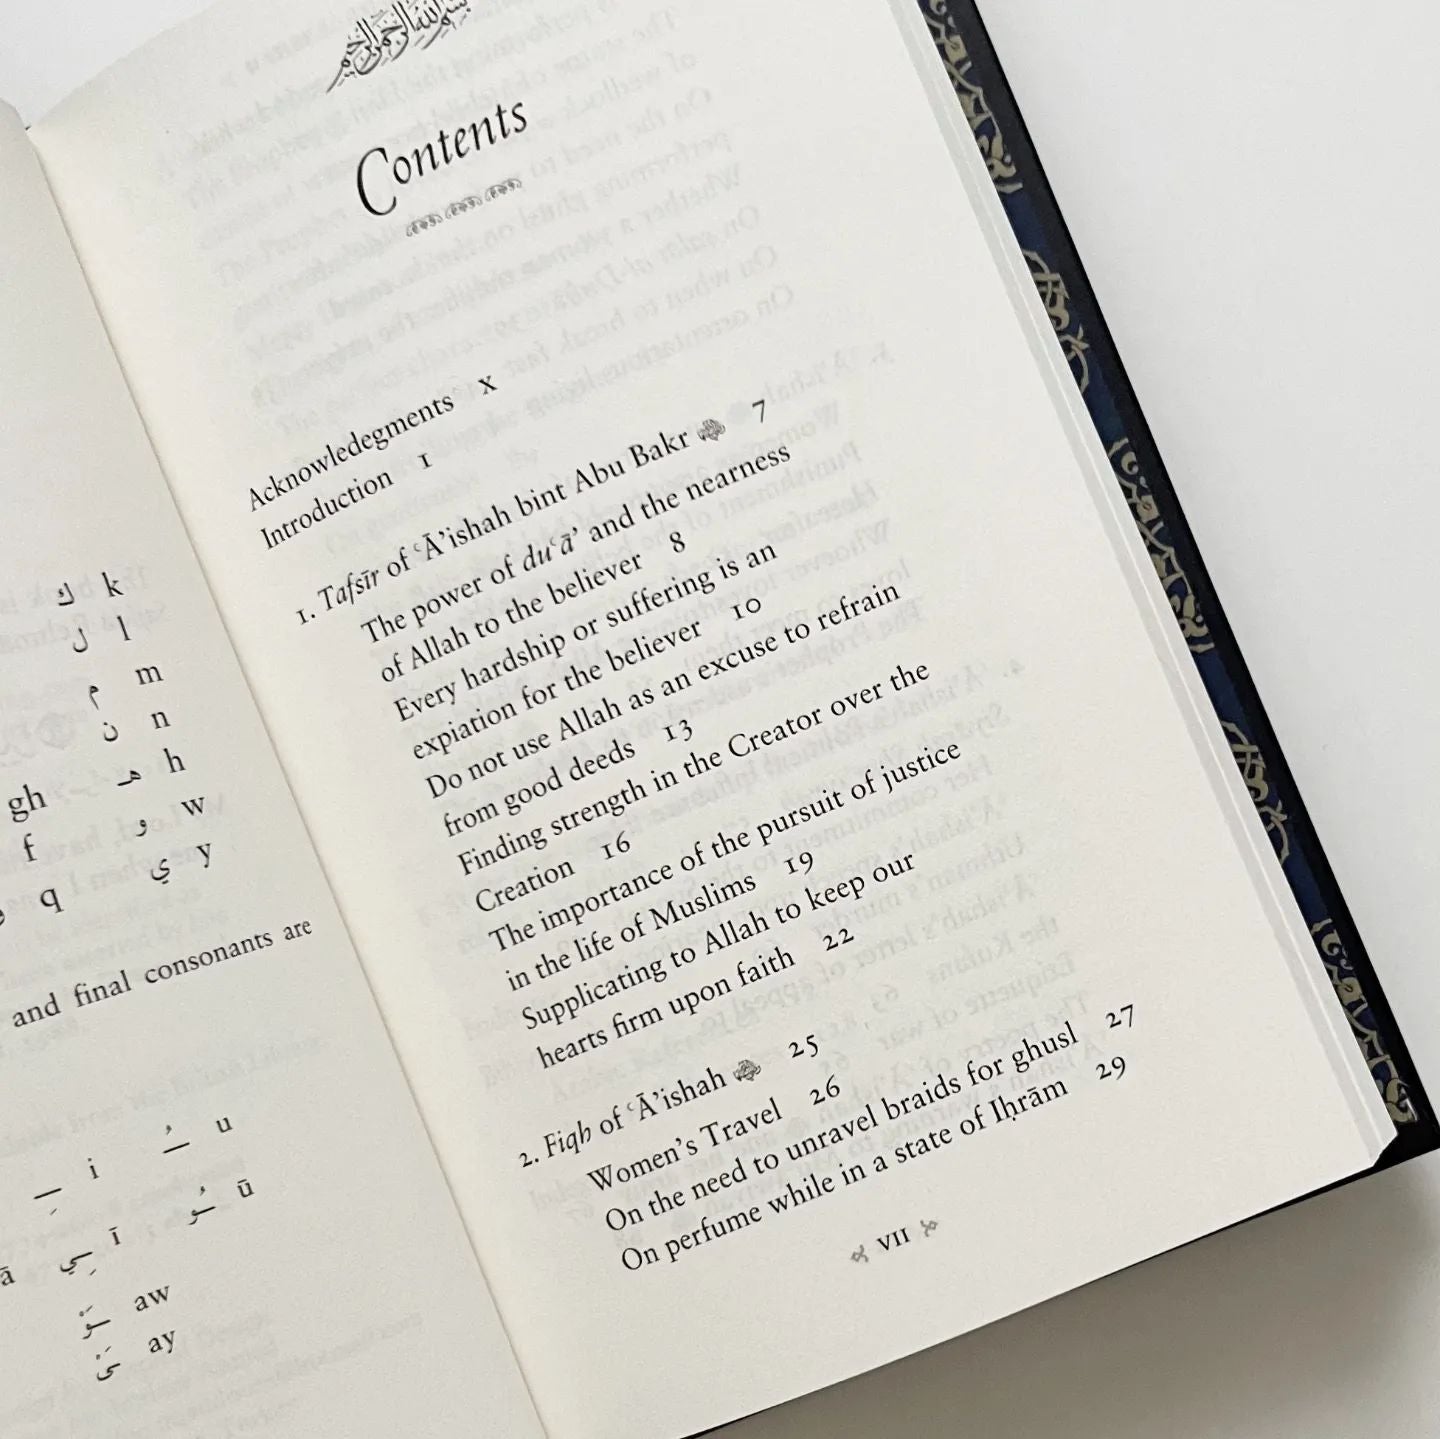 ك k
ل l
م m
ن n
gh هـ h
f و w
q ي y
and final consonants are
ـِ i ـُ u
ā ـِي ī ـُو ū
ـَوْ aw
ـَىْ ay
بسم الله الرحمن الرحيم
Contents
Acknowledegments x
Introduction 1
1. Tafsīr of ʿĀ’ishah bint Abu Bakr 7
The power of duʿā’ and the nearness
of Allah to the believer 8
Every hardship or suffering is an
expiation for the believer 10
Do not use Allah as an excuse to refrain
from good deeds 13
Finding strength in the Creator over the
Creation 16
The importance of the pursuit of justice
in the life of Muslims 19
Supplicating to Allah to keep our
hearts firm upon faith 22
2. Fiqh of ʿĀ’ishah 25
Women’s Travel 26
On the need to unravel braids for ghusl 27
On perfume while in a state of Iḥrām 29
VII